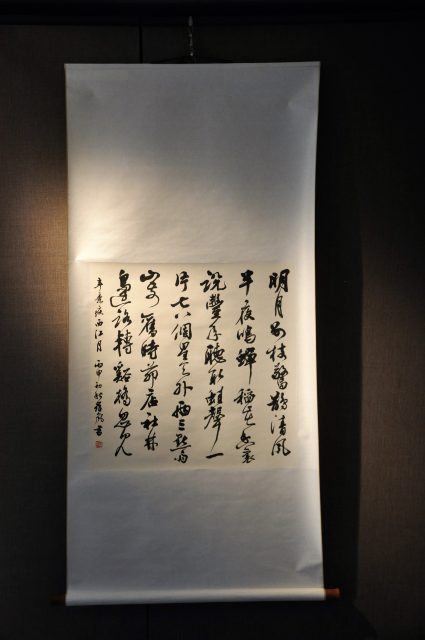 明月別枝驚鵲清風
半夜鳴蟬稻花香裏
說豐年聽取蛙聲一
片七八個星天外兩三點雨
山前舊時茅店社林
邊路轉谿橋忽見
辛棄疾西江月 丙申初秋 書